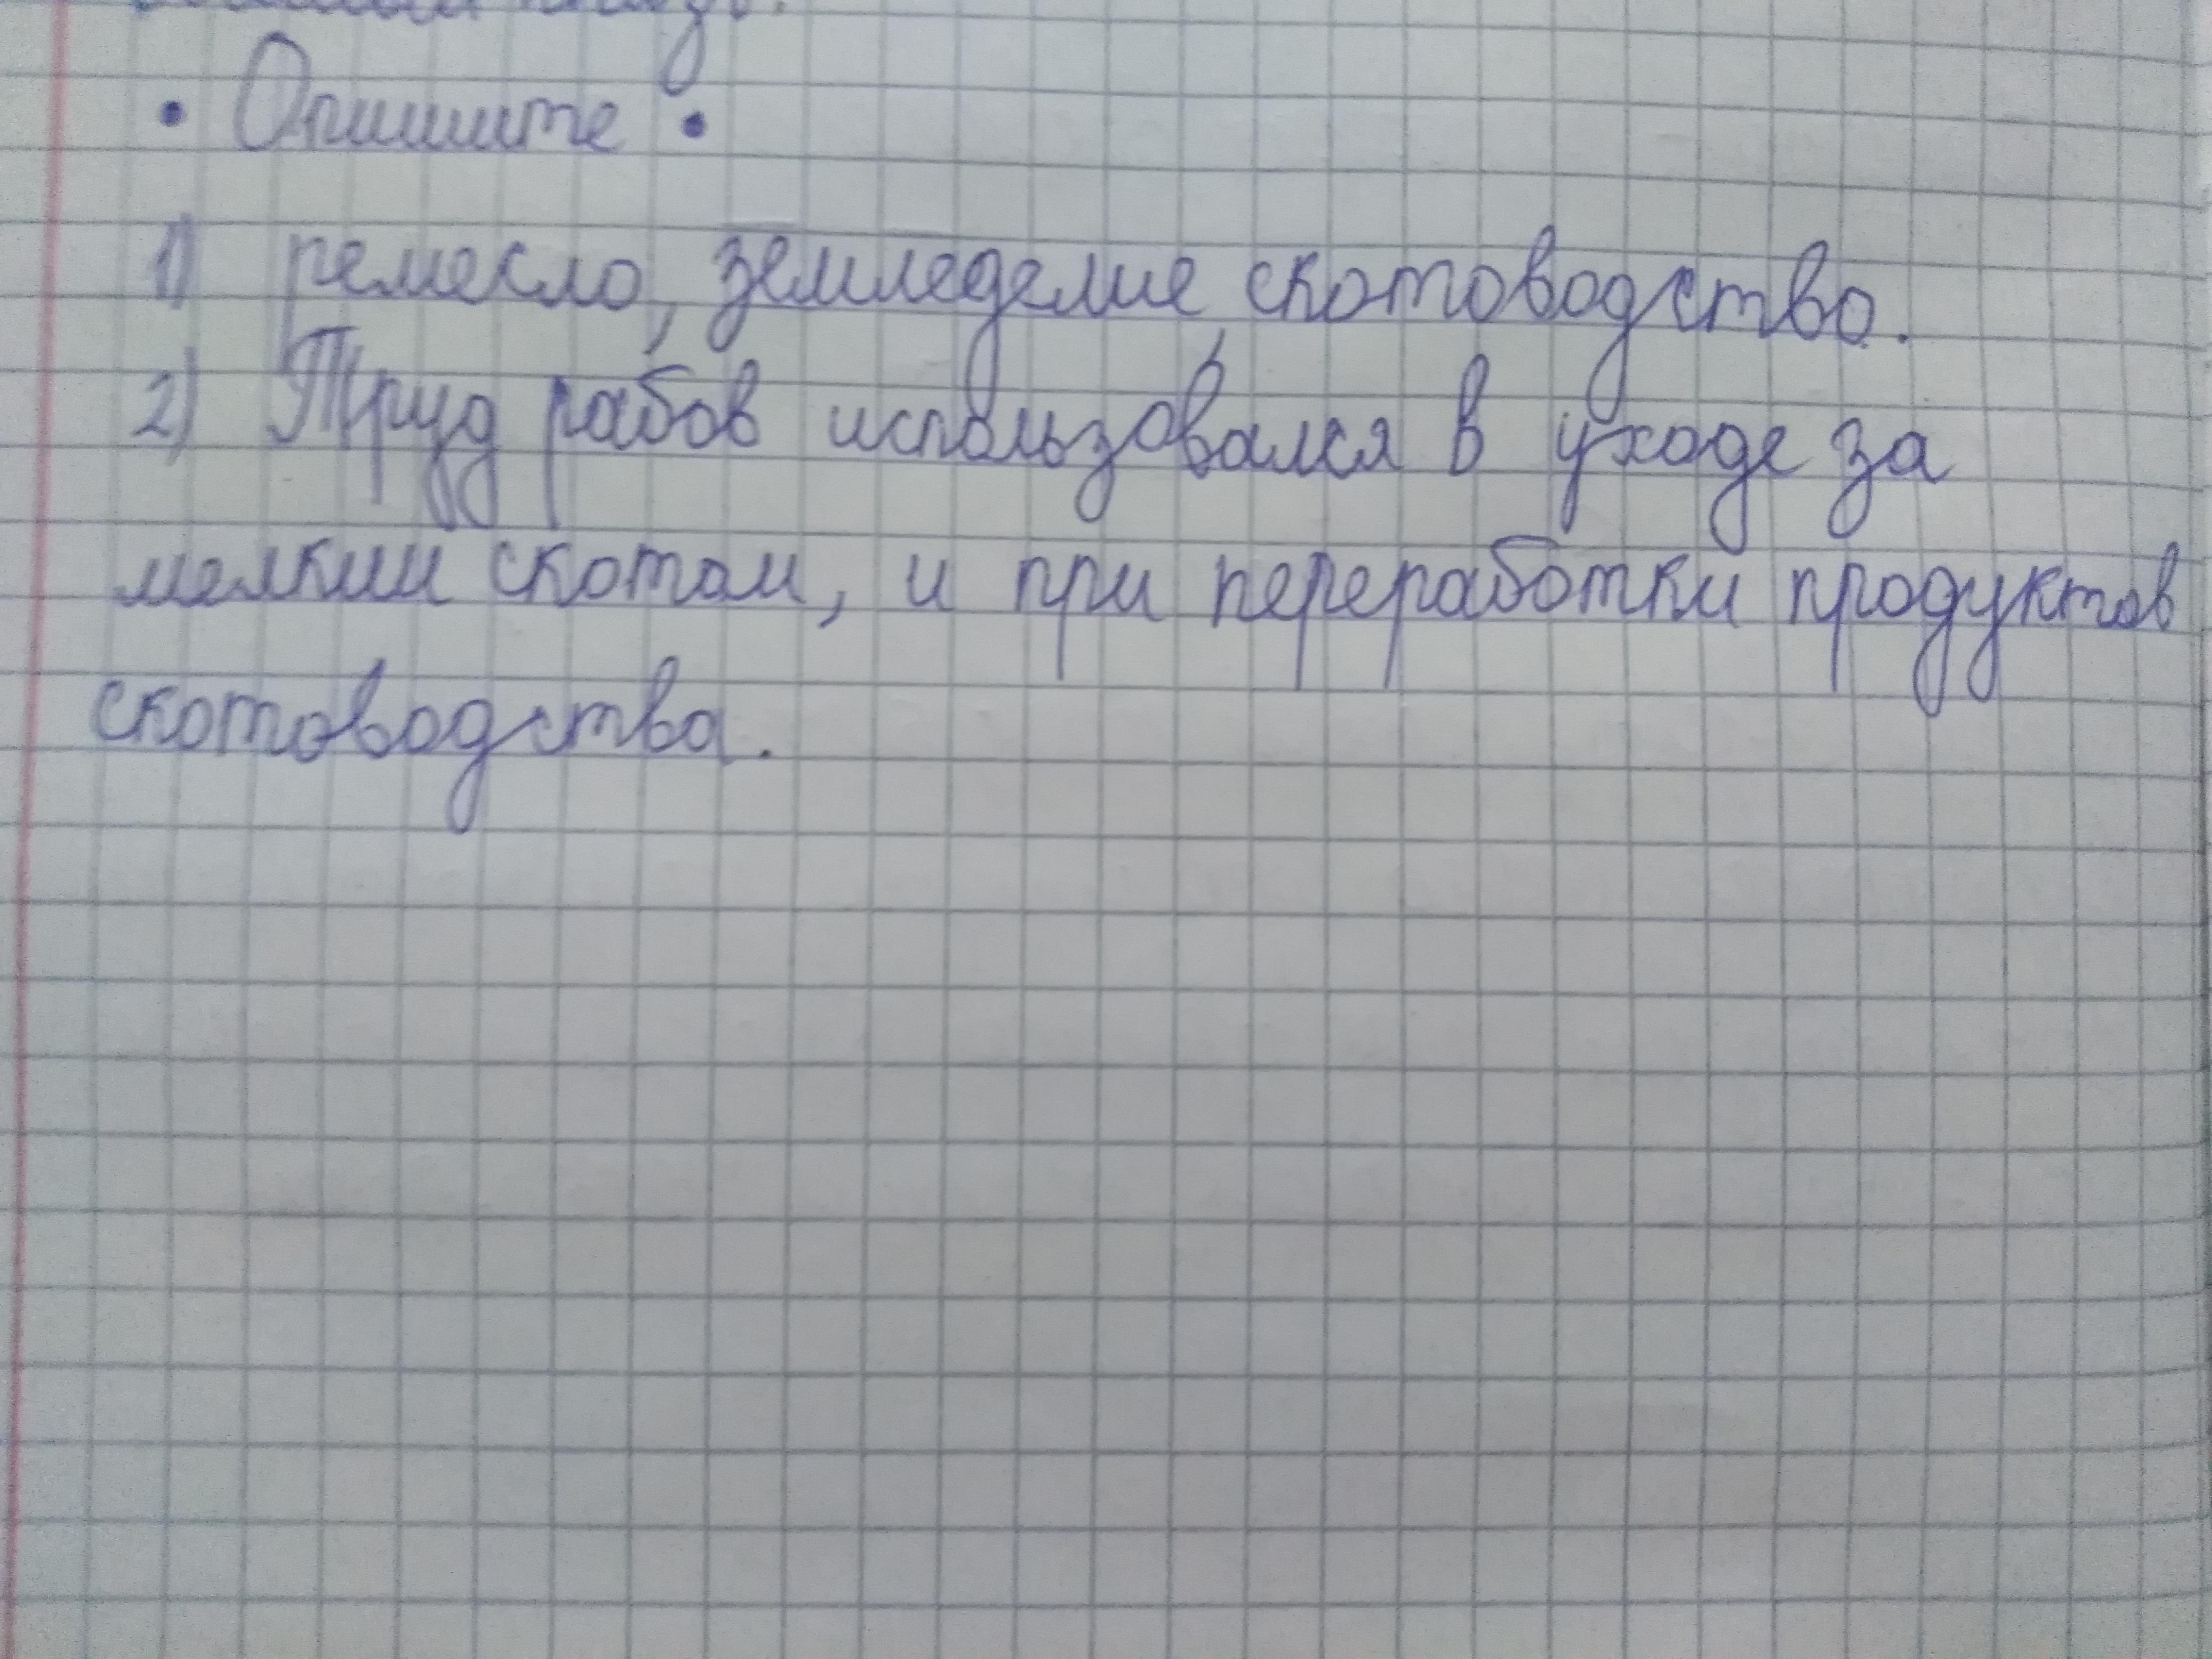 • Опишите •
1) ремесло, земледелие, скотоводство.
2) Труд рабов использовался в уходе за
мелким скотом, и при переработки продуктов
скотоводства.